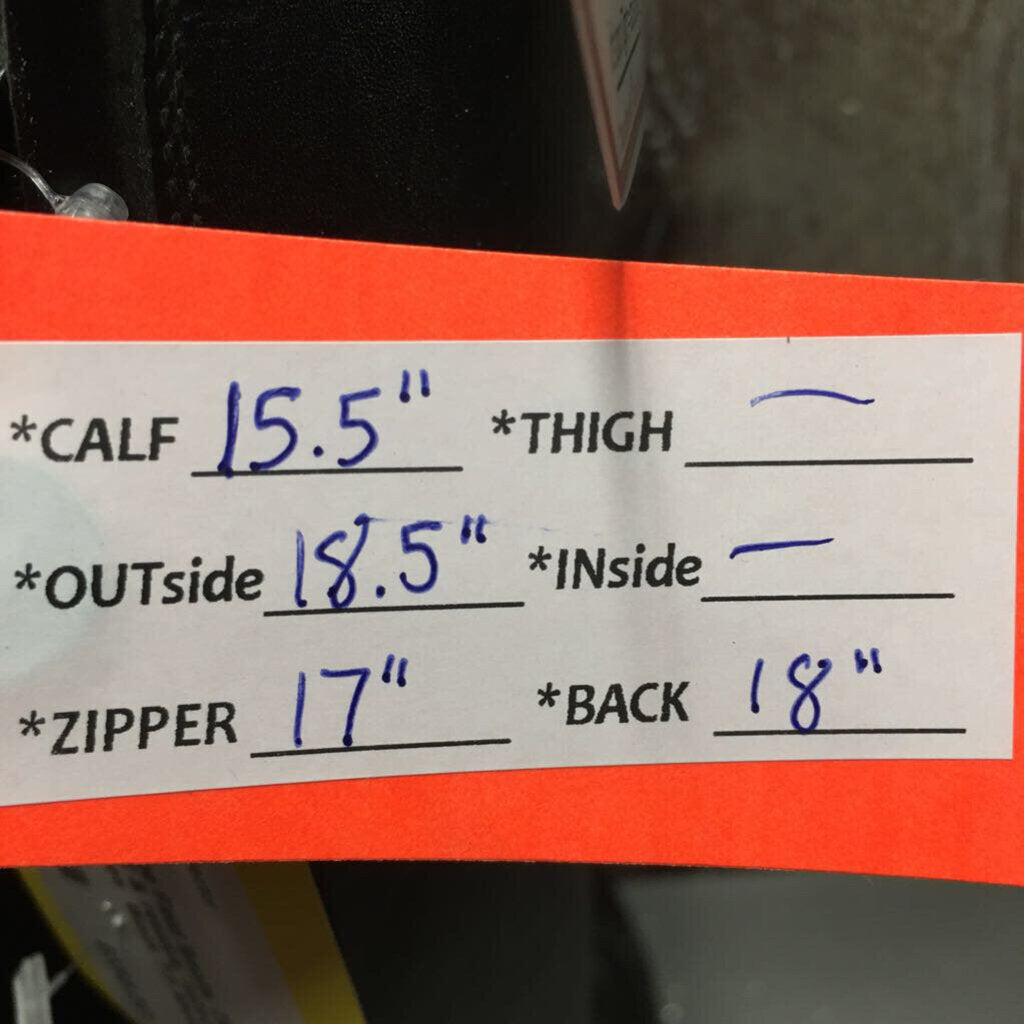 *CALF 15.5" *THIGH —
*OUTside 18.5" *INside —
*ZIPPER 17" *BACK 18"